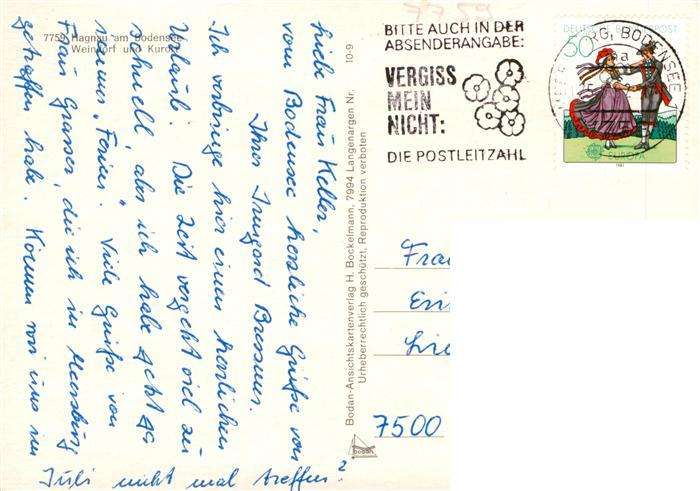 7759 Hagnau am Bodensee
Weindorf und Kurort
Liebe Frau Keller,
vom Bodensee herzliche Grüße von
Ihrer Irmgard
Ich verbringe hier einen herrlichen
Urlaub. Die Zeit vergeht viel zu
schnell, aber ich habe jetzt ja
immer "Ferien". Viele Grüße von
Frau Grasser, die ich in Meersburg
getroffen habe. Können wir uns im
Juli nicht mal treffen?
10-9
Bodan-Ansichtskartenverlag H. Bockelmann, 7994 Langenargen Nr.
Urheberrechtlich geschützt, Reproduktion verboten
BODAN
7759
BITTE AUCH IN DER
ABSENDERANGABE:
VERGISS
MEIN
NICHT:
DIE POSTLEITZAHL
50
EUROPA
1981
Frau
Eri
7500